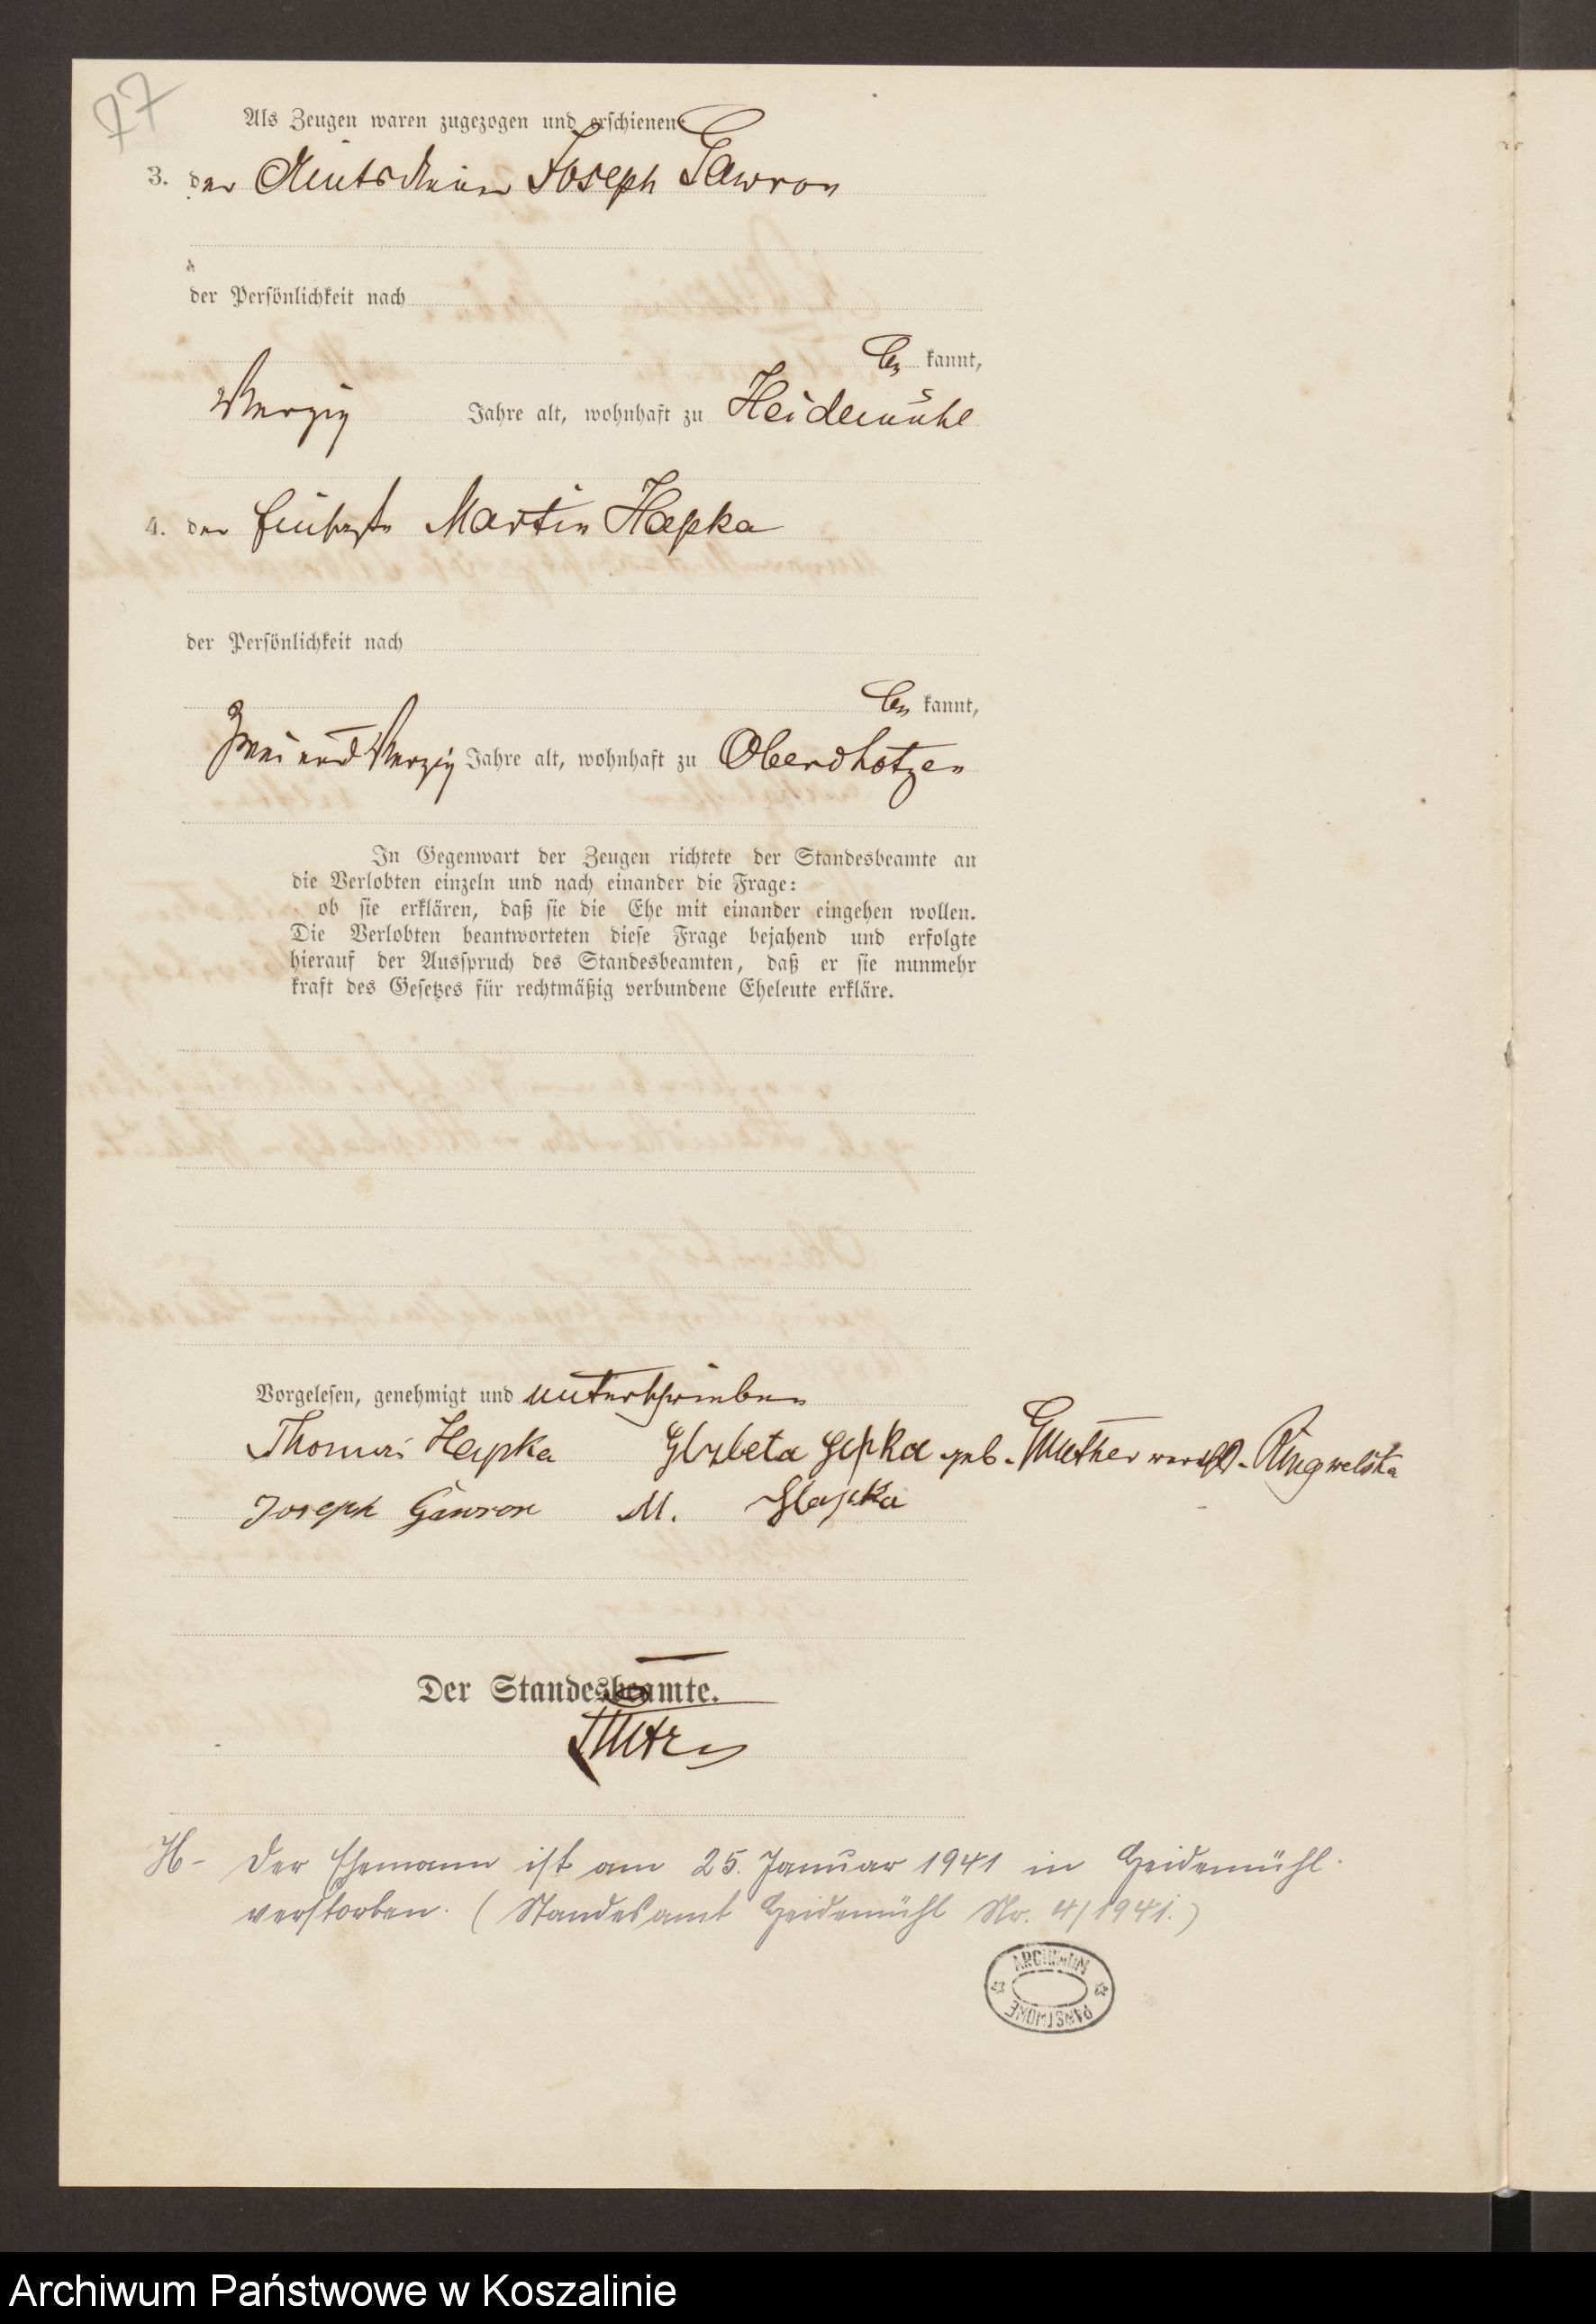 77
Als Zeugen waren zugezogen und erschienen:
3. der Amtsdiener Joseph Gawron
der Persönlichkeit nach
be kannt,
vierzig Jahre alt, wohnhaft zu Heidemühl
4. der Martin Hapka
der Persönlichkeit nach
be kannt,
zwei und vierzig Jahre alt, wohnhaft zu Oberdhotzen
In Gegenwart der Zeugen richtete der Standesbeamte an
die Verlobten einzeln und nach einander die Frage:
ob sie erklären, daß sie die Ehe mit einander eingehen wollen.
Die Verlobten beantworteten diese Frage bejahend und erfolgte
hierauf der Ausspruch des Standesbeamten, daß er sie nunmehr
kraft des Gesetzes für rechtmäßig verbundene Eheleute erkläre.
Vorgelesen, genehmigt und unterschrieben
Thomas Hapka Elzbeta Hapka geb.
Joseph Gawron M. Hapka
Der Standesbeamte.
H- Der Ehemann ist am 25. Januar 1941 in Heidemühl
verstorben. (Standesamt Heidemühl Nr. 4/1941.)
ARCHIWUM
PAŃSTWOWE
Archiwum Państwowe w Koszalinie